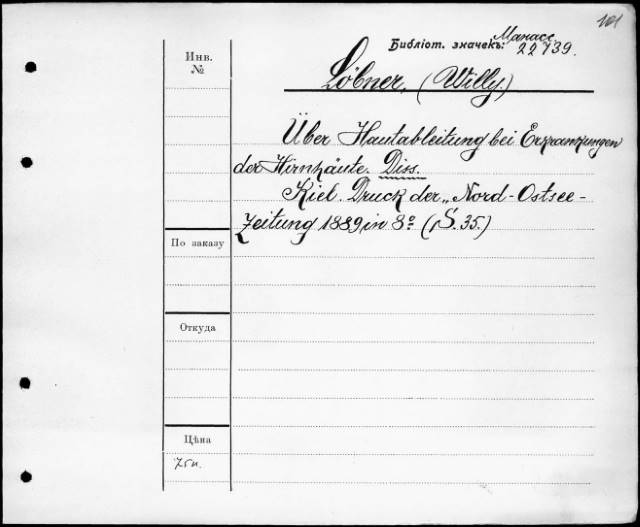 101
Библіот. значекъ: Манасс.
22739.
Инв.
№
Löbner, (Willy.)
Über Hautableitung bei Erkrankungen
der Hirnhäute. Diss.
Kiel. Druck der „Nord-Ostsee-
Zeitung 1889 in 8º (S. 35.)
По заказу
Откуда
Цѣна
75к.